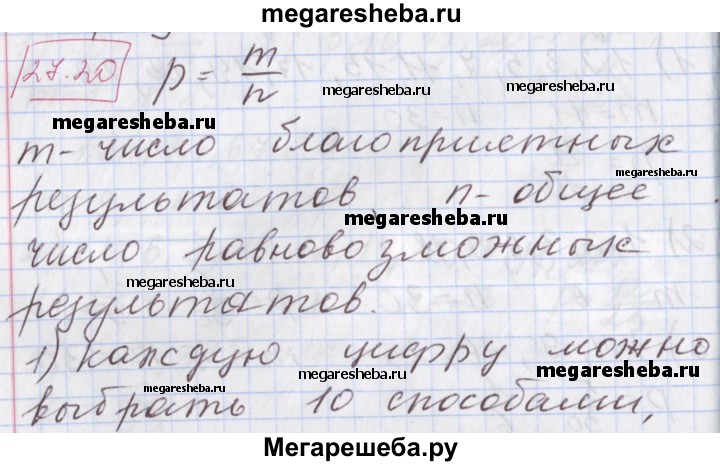 megaresheba.ru
27.20 p = m/n
megaresheba.ru megaresheba.ru
megaresheba.ru
m - число благоприятных
megaresheba.ru
результатов n - общее
megaresheba.ru
число равновозможных
megaresheba.ru megaresheba.ru
результатов.
1) каждую цифру можно
megaresheba.ru megaresheba.ru
выбрать 10 способами,
megaresheba.ru
Мегарешеба.ру